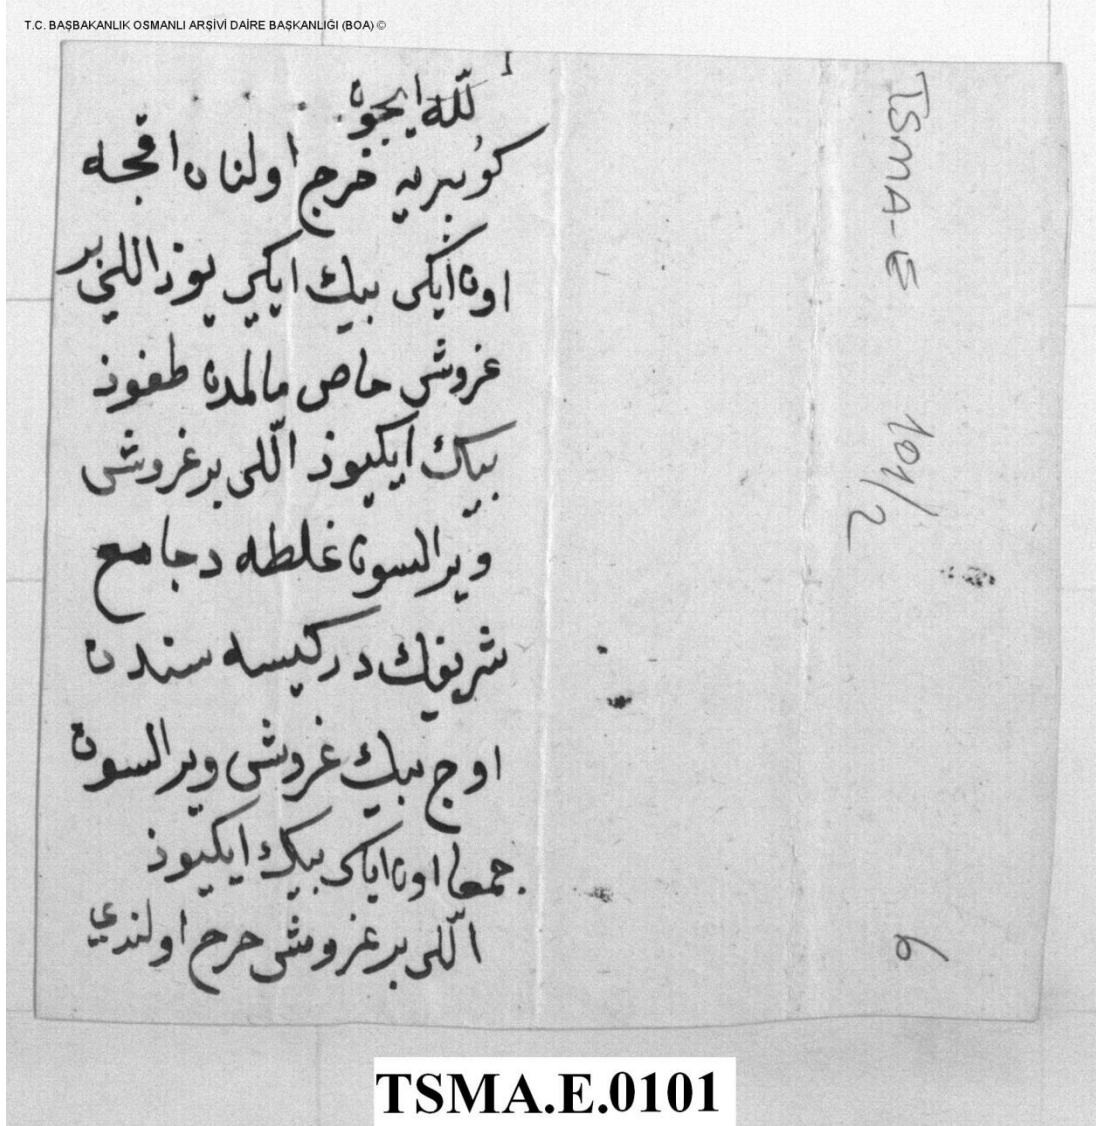 T.C. BAŞBAKANLIK OSMANLI ARŞİVİ DAİRE BAŞKANLIĞI (BOA) ©
لله ايچون
كوبريه خرج اولنان اقچه
اون ايكى بيك ايكى يوز اللى بر
غروش خاص مالمدن طقوز
بيك ايكيوز اللى بر غروش
ويرلسون غلطه ده جامع
شريفك در كيسه سندن
اوچ بيك غروش ويرلسون
جمعا اون ايكى بيك ايكيوز
اللى بر غروش خرج اولندى
TSMA-E 101/2
6
TSMA.E.0101